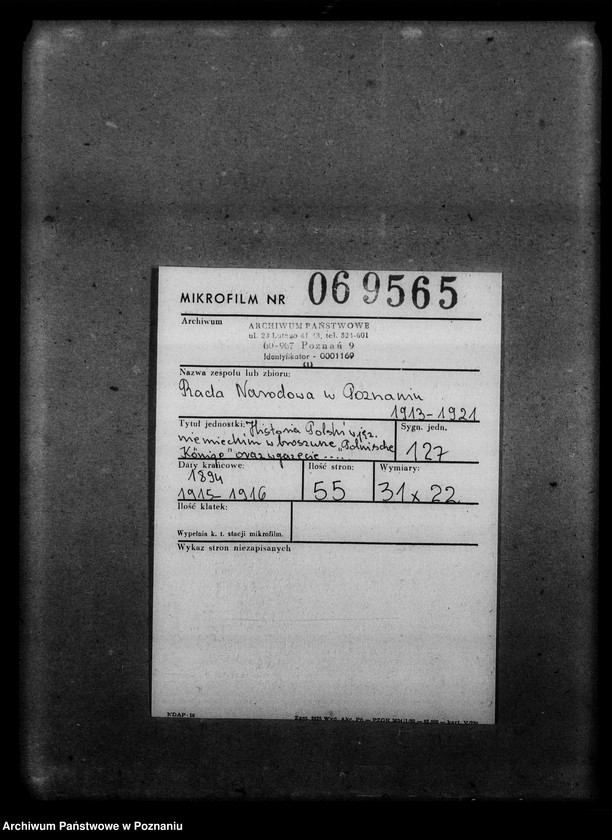 MIKROFILM NR 069565
Archiwum
ARCHIWUM PAŃSTWOWE
ul. 23 Lutego 41/43, tel. 524-601
60-967 Poznań 9
Identyfikator - 0001169
(1)
Nazwa zespołu lub zbioru:
Rada Narodowa w Poznaniu
1913-1921
Tytuł jednostki: Historia Polski w jęz.
niemieckim w broszurze "Polnische
Könige" oraz
Sygn. jedn.
127
Daty krańcowe:
1894
1915-1916
Ilość stron:
55
Wymiary:
31 x 22
Ilość klatek:
Wypełnia k. t. stacji mikrofilm.
Wykaz stron niezapisanych
NDAP-16
Archiwum Państwowe w Poznaniu